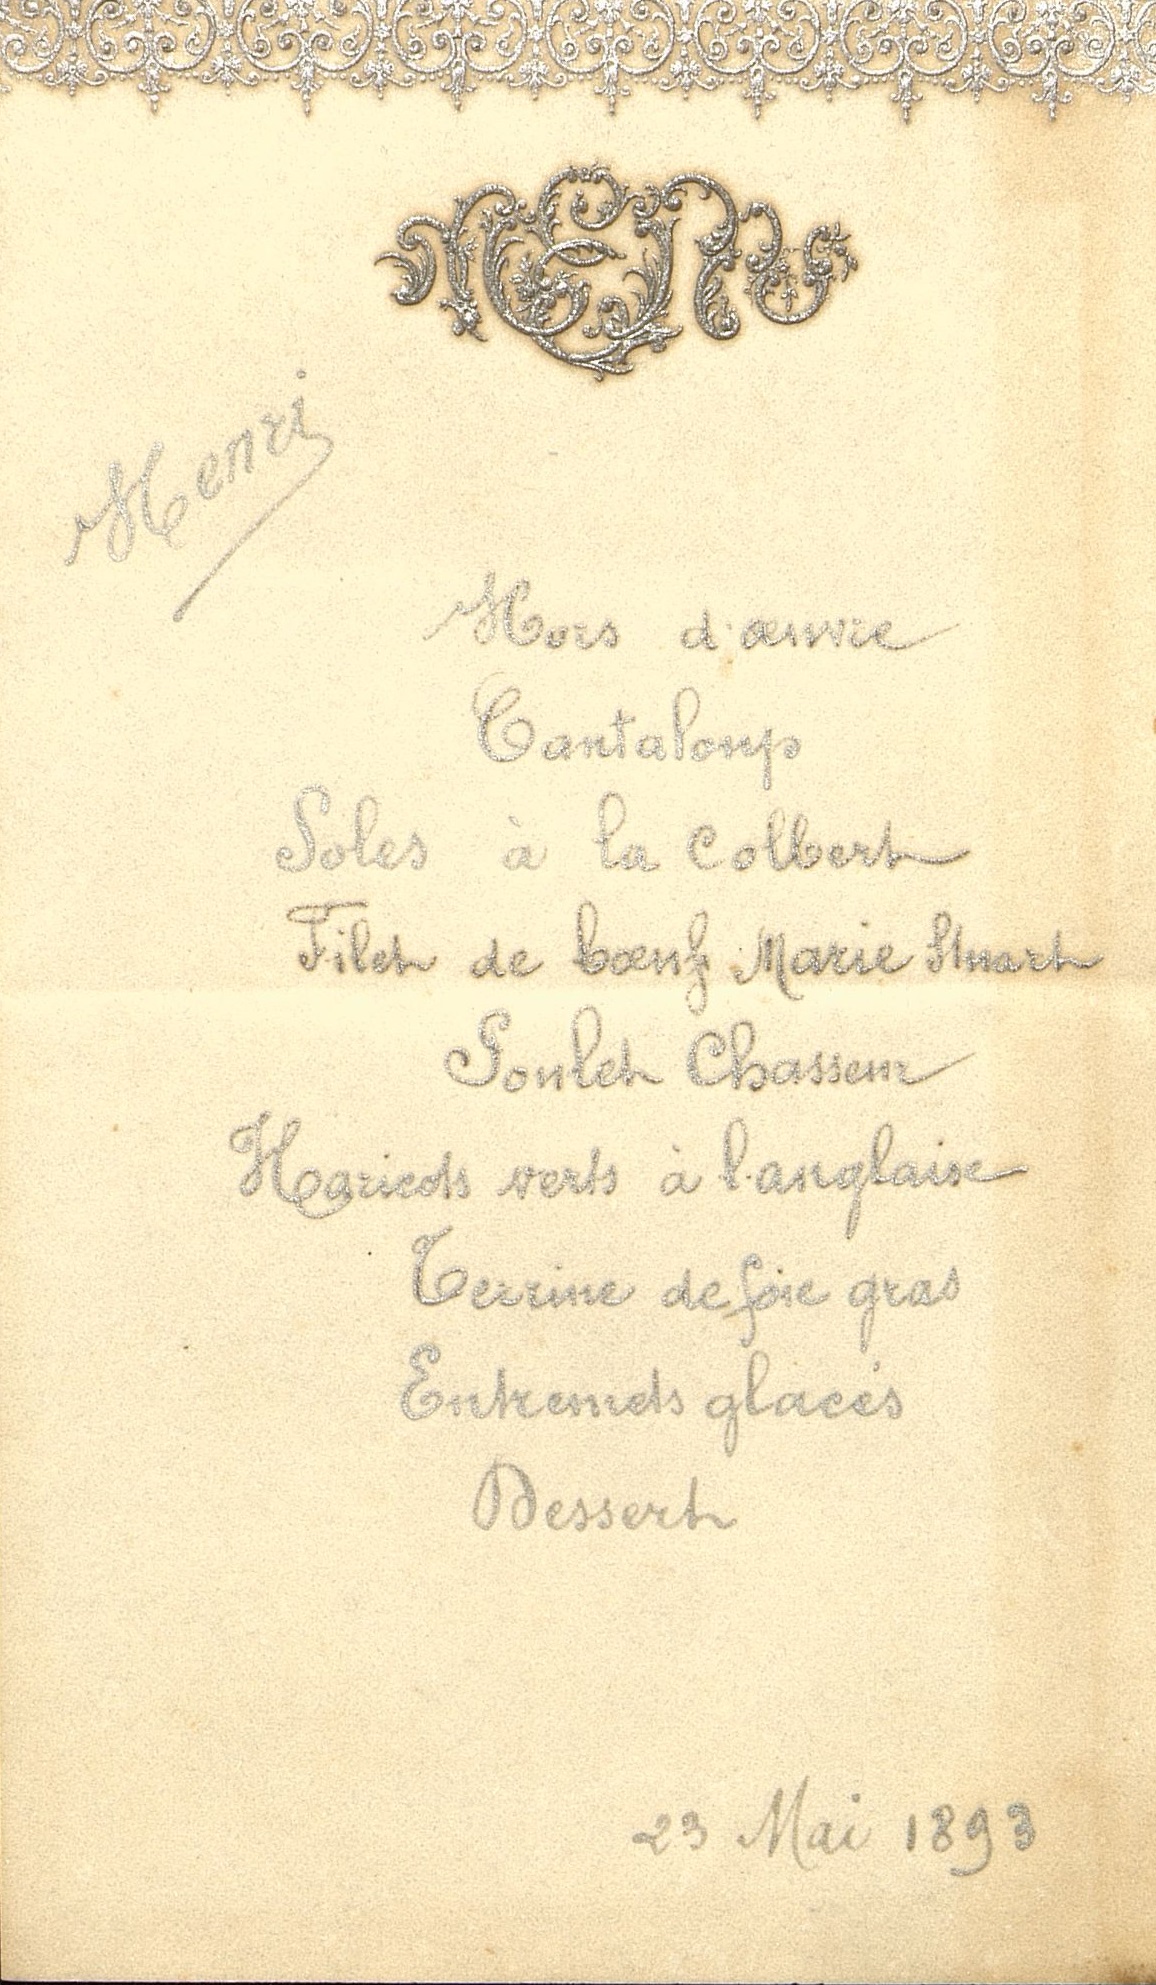 MENU
Henri
Hors d'œuvre
Cantaloup
Soles à la Colbert
Filet de bœuf Marie Stuart
Poulet Chasseur
Haricots verts à l'anglaise
Terrine de foie gras
Entremets glacés
Dessert
23 Mai 1893